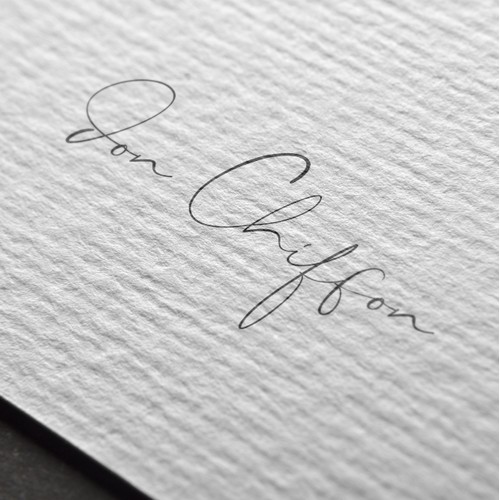 Don Chiffon